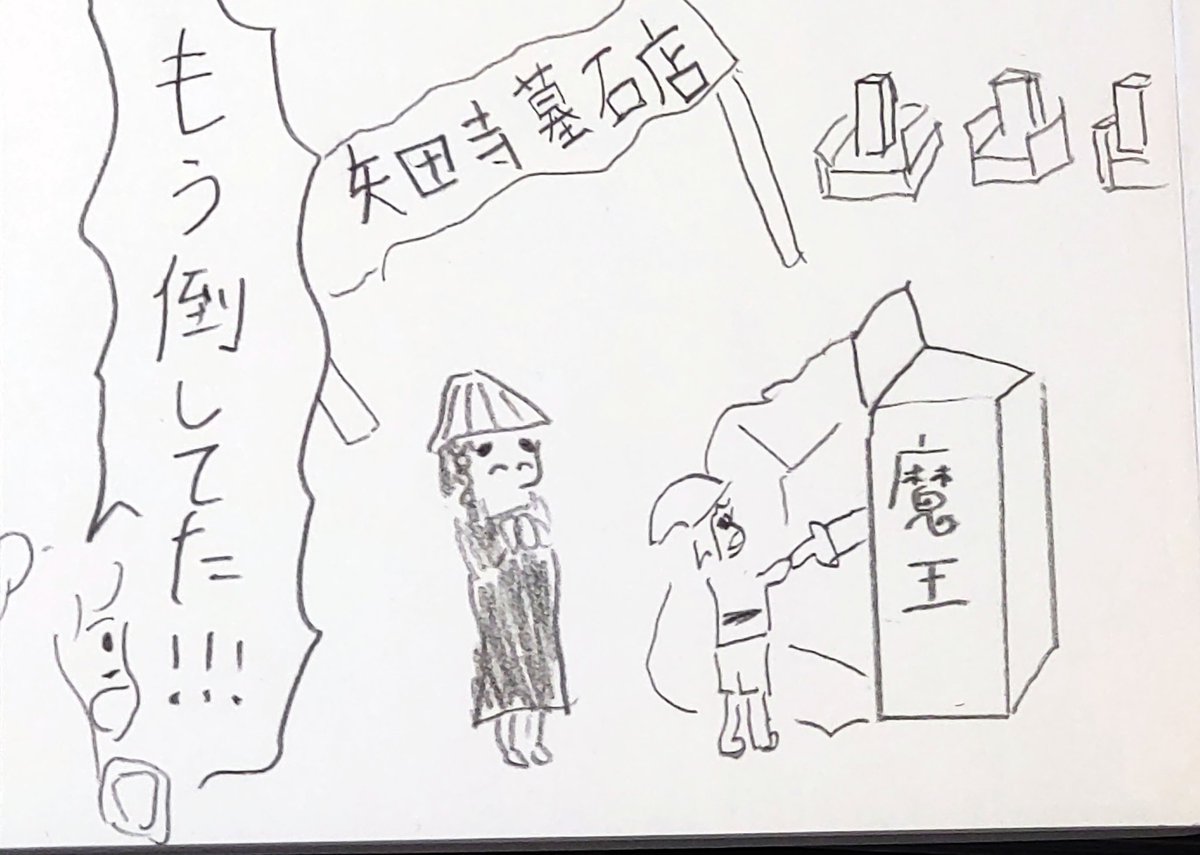 もう倒してた!!!
矢田寺墓石店
魔王